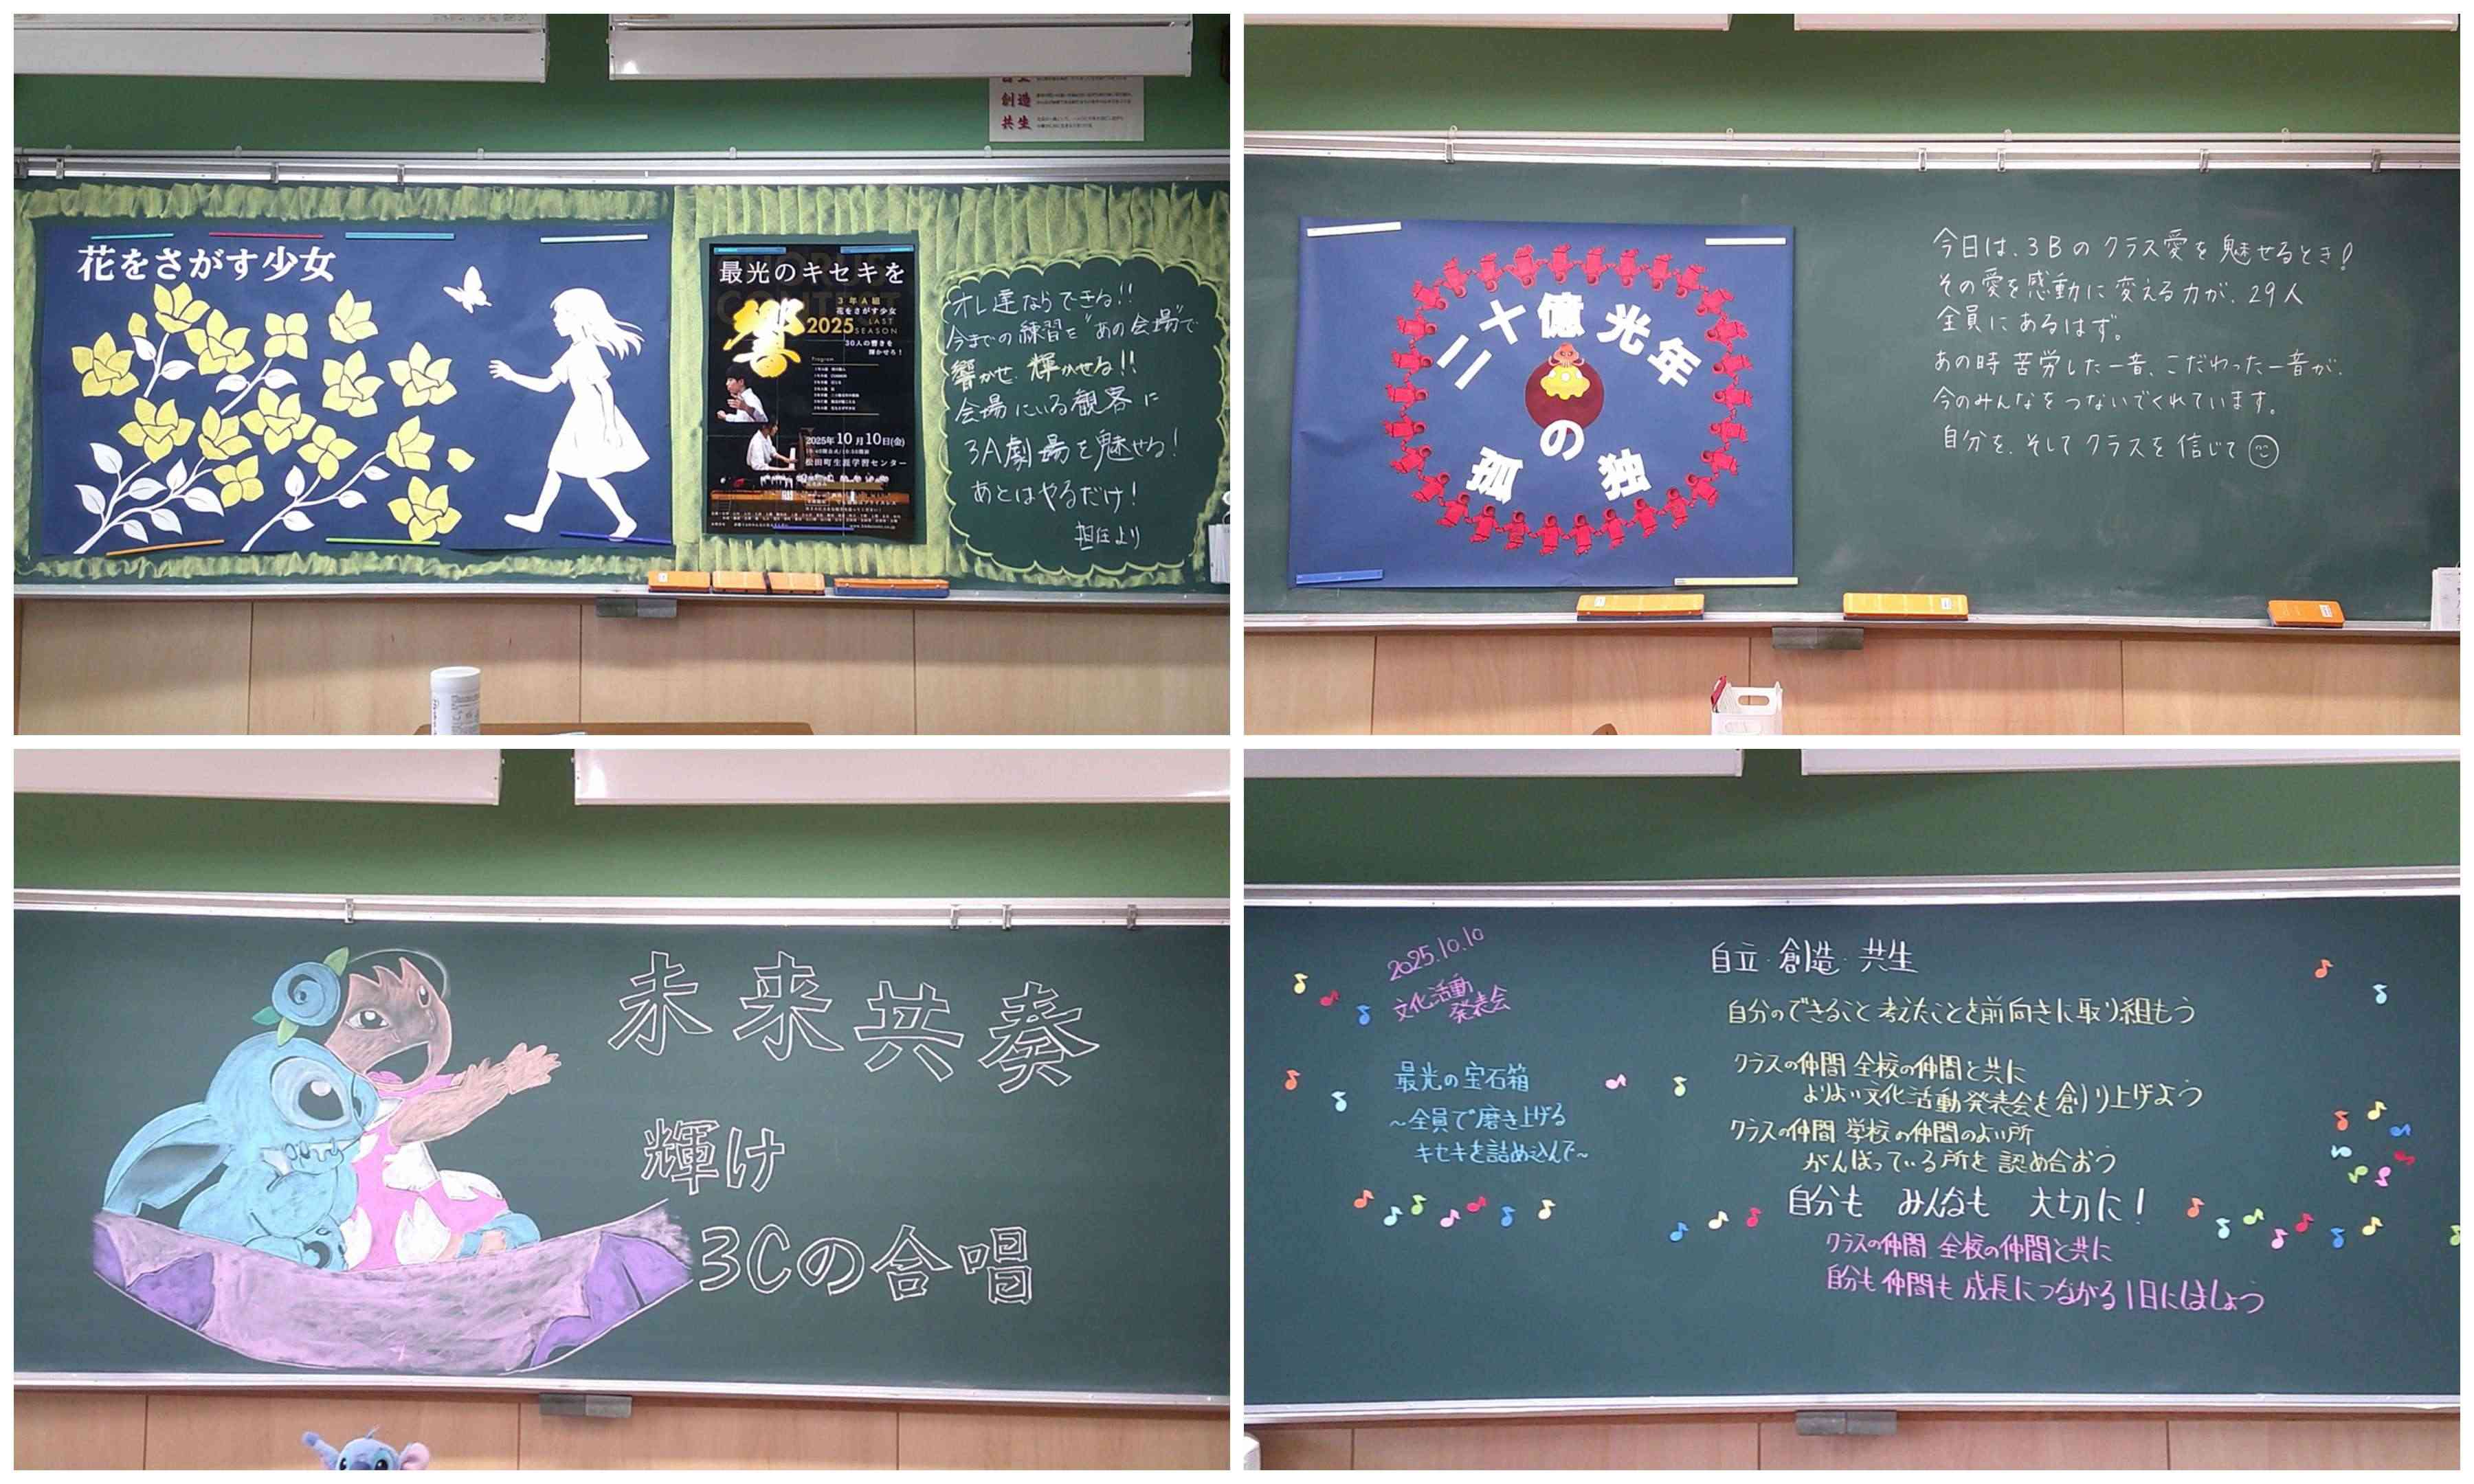 創造
共生
花をさがす少女
最光のキセキを
響
3年A組
花をさがす少女
2025 LAST
SEASON
30人の響きを
輝かせろ！
Program
2025年10月10日(金)
松田町生涯学習センター
オレ達ならできる!!
今までの練習を"あの会場"で
響かせ、輝かせる!!
会場にいる観客に
3A劇場を魅せる!
あとはやるだけ!
担任より
二十億光年
の
孤独
今日は、3Bのクラス愛を魅せるとき!
その愛を感動に変える力が、29人
全員にあるはず。
あの時苦労した一音、こだわった一音が、
今のみんなをつないでくれています。
自分を、そしてクラスを信じて
未来共奏
輝け
3Cの合唱
2025.10.10
文化活動
発表会
最光の宝石箱
～全員で磨き上げる
キセキを詰め込んで～
自立・創造・共生
自分のできること考えたことを前向きに取り組もう
クラスの仲間 全校の仲間と共に
よりよい文化活動発表会を創り上げよう
クラスの仲間 学校の仲間のよい所
がんばっている所を認め合おう
自分も みんなも 大切に!
クラスの仲間 全校の仲間と共に
自分も仲間も成長につながる1日にしましょう